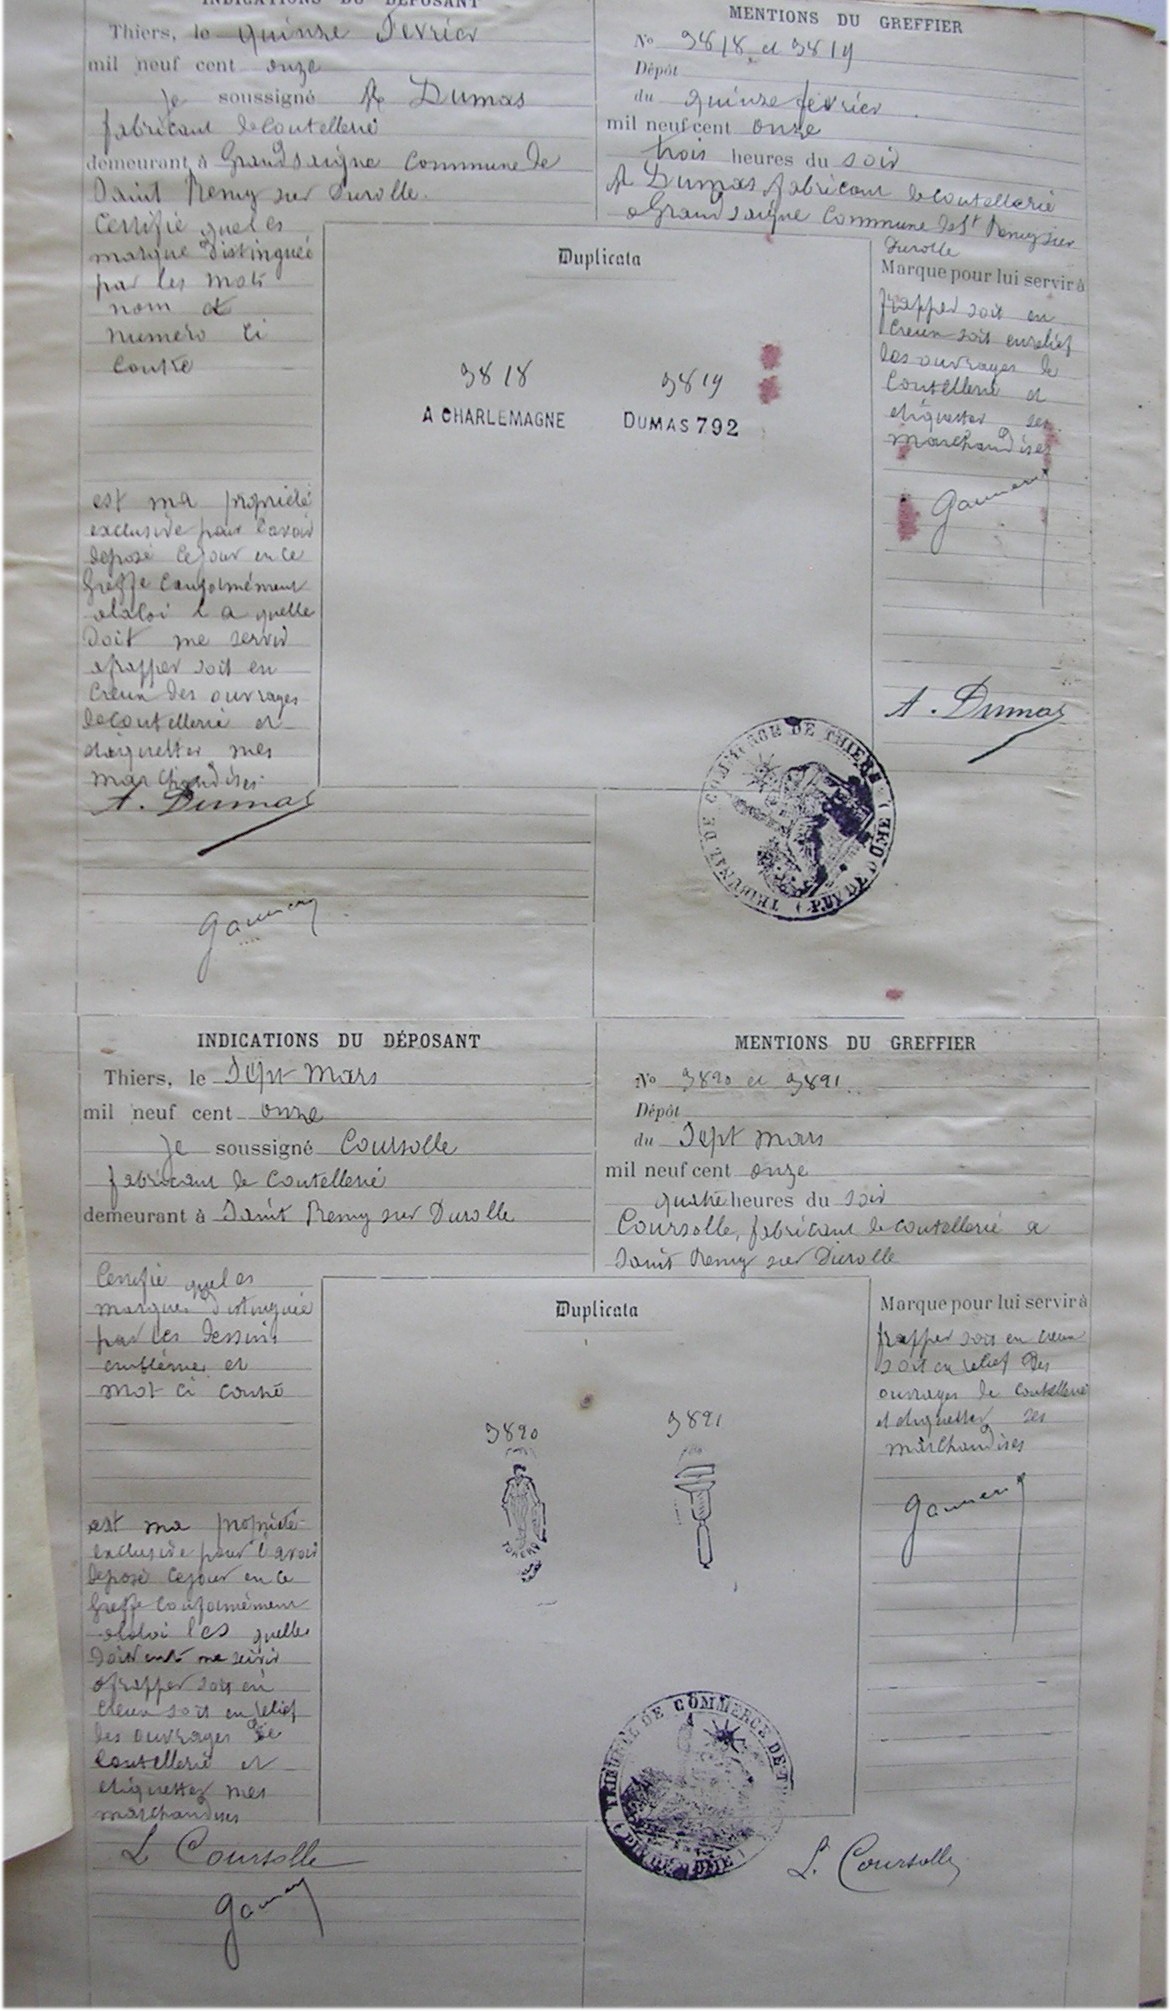 INDICATIONS DU DÉPOSANT
Thiers, le quinze Fevrier
mil neuf cent onze
je soussigné A Dumas
fabricant de Coutellerie
demeurant à Grandsaigne Commune de
Saint Remy sur Durolle.
Certifie que les
marque Distinguée
par les mots
nom et
numero Ci
Contre
est ma propriété
exclusive pour l'avoir
déposé ce jour en ce
Greffe Conformément
a la loi la quelle
Doit me servir
a frapper soit en
Creux des ouvrages
de Coutellerie et
étiquetter mes
marchandises
A. Dumas
MENTIONS DU GREFFIER
No 3818 et 3819
Dépôt
du quinze fevrier
mil neuf cent onze
trois heures du soir
A Dumas fabricant de Coutellerie
a Grandsaigne Commune de St Remy sur
Durolle
Marque pour lui servir à
frapper soit en
Creux soit en relief
des ouvrages de
Coutellerie et
etiquetter ses
marchandises
A. Dumas
Duplicata
3818 3819
A CHARLEMAGNE DUMAS 792
TRIBUNAL DE COMMERCE DE THIERS (PUY DE DOME)
INDICATIONS DU DÉPOSANT
Thiers, le Sept Mars
mil neuf cent onze
je soussigné Coursolle
fabricant de Coutellerie
demeurant à Saint Remy sur Durolle
Certifie que les
marques Distinguée
par les dessins
emblémes et
mot ci contre
est ma propriété
exclusive pour l'avoir
déposé ce jour en ce
Greffe Conformément
a la loi les quelles
Doivent me servir
a frapper soit en
Creux soit en relief
des ouvrages de
Coutellerie et
etiquetter mes
marchandises
L Coursolle
MENTIONS DU GREFFIER
No 3820 et 3821
Dépôt
du Sept mars
mil neuf cent onze
quatre heures du soir
Coursolle, fabricant de Coutellerie a
Saint Remy sur Durolle
Marque pour lui servir à
frapper soit en creux
soit en relief des
ouvrages de Coutellerie
et etiquetter ses
marchandises
L. Coursolle
Duplicata
3820 3821
TORERO
TRIBUNAL DE COMMERCE DE T (PUY DE DOME)